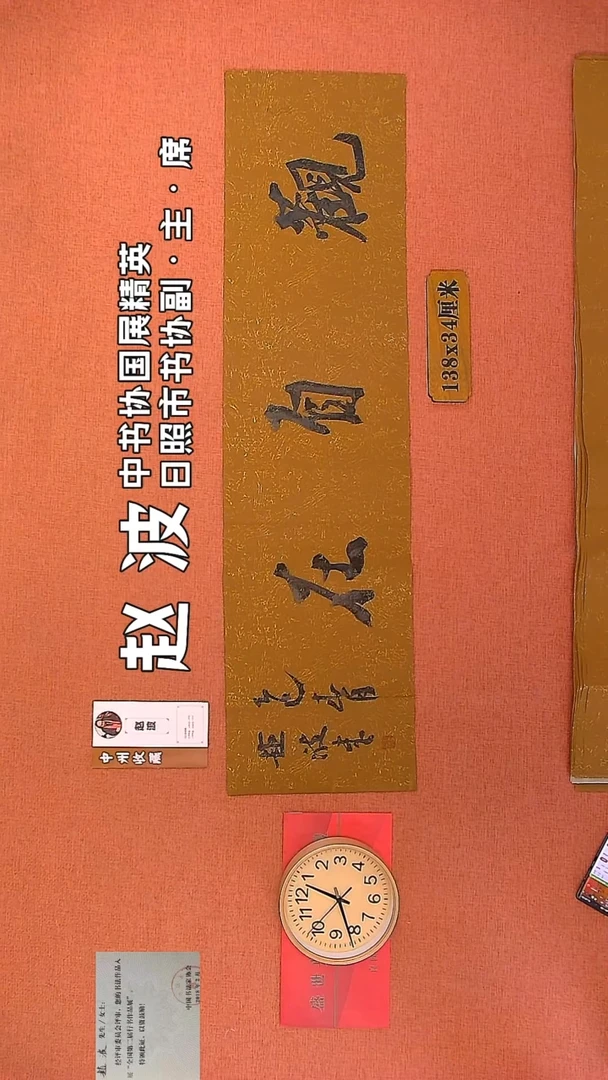 中书协国展精英
日照市书协副·主·席
赵波
觀自在
乙巳春
趙波書
138x34厘米
赵波
中州收藏
盛世
12
1
2
3
4
5
6
7
8
9
10
11
先生/女士:
经评审委员会评审，您的书法作品入
展“全国第二届行书作品展”，
特颁此证，以资鼓励！
中国书法家协会